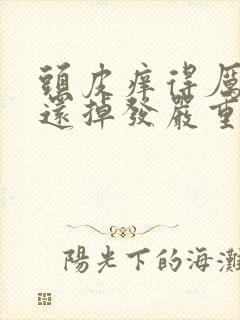 頭皮痒得厲
還掉發嚴重
陽光下的海灘